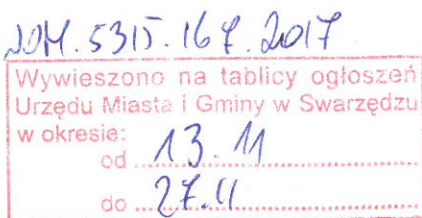 ROM.5315.167.2017
Wywieszono na tablicy ogłoszeń
Urzędu Miasta i Gminy w Swarzędzu
w okresie:
od ..13.11
do ..27.11